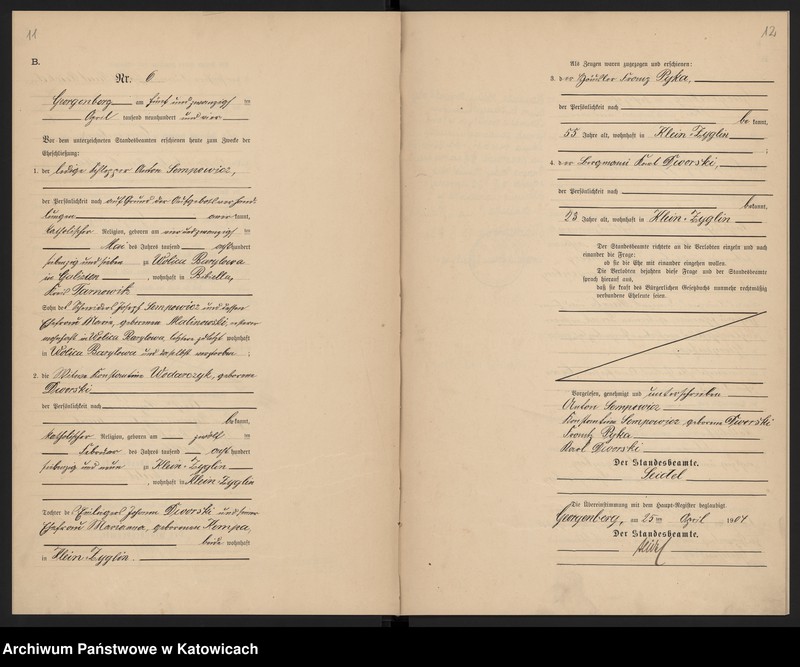 11
B.
Nr. 6
Georgenberg am fünf und zwanzigsten
April tausend neunhundert und vier
Vor dem unterzeichneten Standesbeamten erschienen heute zum Zwecke der
Eheschließung:
1. der ledige Schlepper Anton Sempowicz,
der Persönlichkeit nach auf Grund der Aufgebotsverhand
lungen anerkannt,
katholischer Religion, geboren am vierundzwanzigsten
Mai des Jahres tausend achthundert
siebenzig und sieben zu Wolica Barylowa
in Galizien, wohnhaft in Bibiella,
Kreis Tarnowitz
Sohn des Schneiders Josef Sempowicz und dessen
Ehefrau Maria, geborenen Malinowski, ersterer
wohnhaft in Wolica Barylowa, letztere zuletzt wohnhaft
in Wolica Barylowa und daselbst verstorben;
2. die Witwe Konstantine Wodarczyk, geborene
Dworski
der Persönlichkeit nach
bekannt,
katholischer Religion, geboren am zwölften
Februar des Jahres tausend achthundert
siebenzig und neun zu Klein-Zyglin
, wohnhaft in Klein-Zyglin
Tochter des Johann Dworski und seiner
Ehefrau Marianna, geborenen Kempa,
beide wohnhaft
in Klein-Zyglin.
12
Als Zeugen waren zugezogen und erschienen:
3. der Häusler Franz Pyka,
der Persönlichkeit nach
bekannt,
55 Jahre alt, wohnhaft in Klein-Zyglin
;
4. der Bergmann Karl Dworski,
der Persönlichkeit nach
bekannt,
23 Jahre alt, wohnhaft in Klein-Zyglin
Der Standesbeamte richtete an die Verlobten einzeln und nach
einander die Frage:
ob sie die Ehe mit einander eingehen wollen.
Die Verlobten bejahten diese Frage und der Standesbeamte
sprach hierauf aus,
daß sie kraft des Bürgerlichen Gesetzbuchs nunmehr rechtmäßig
verbundene Eheleute seien.
Vorgelesen, genehmigt und unterschrieben
Anton Sempowicz
Konstantina Sempowicz, geborene Dworski
Franz Pyka
Karl Dworski
Der Standesbeamte.
Seidel
Die Übereinstimmung mit dem Haupt-Register beglaubigt
Georgenberg, am 25ten April 1904
Der Standesbeamte.
Seidel
Archiwum Państwowe w Katowicach